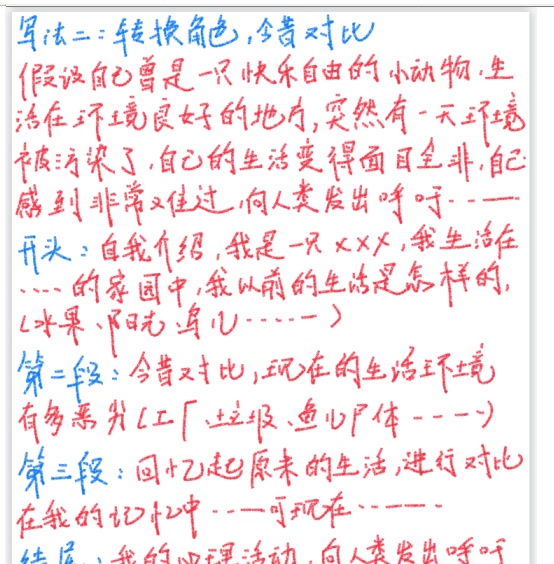 写法二:转换角色,今昔对比
假设自己曾是一只快乐自由的小动物,生
活在环境良好的地方,突然有一天环境
被污染了,自己的生活变得面目全非,自己
感到非常难过,向人类发出呼吁······
开头:自我介绍,我是一只xxx,我生活在
····的家园中,我以前的生活是怎样的,
(水果、阳光、鸟儿······)
第二段:今昔对比,现在的生活环境
有多恶劣(工厂、垃圾、鱼儿尸体·····)
第三段:回忆起原来的生活,进行对比
在我的记忆中·····可现在·····
结尾:我的心理活动,向人类发出呼吁